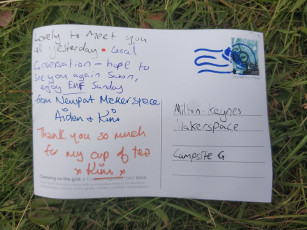 Lovely to meet you
all yesterday. Great
Conversation - hope to
see you again soon,
enjoy EMF Sunday
from Newport Makerspace
Aiden + Kim
Thank you so much
for my cup of tea
x Kim x
Milton Keynes
Makerspace
Campsite G